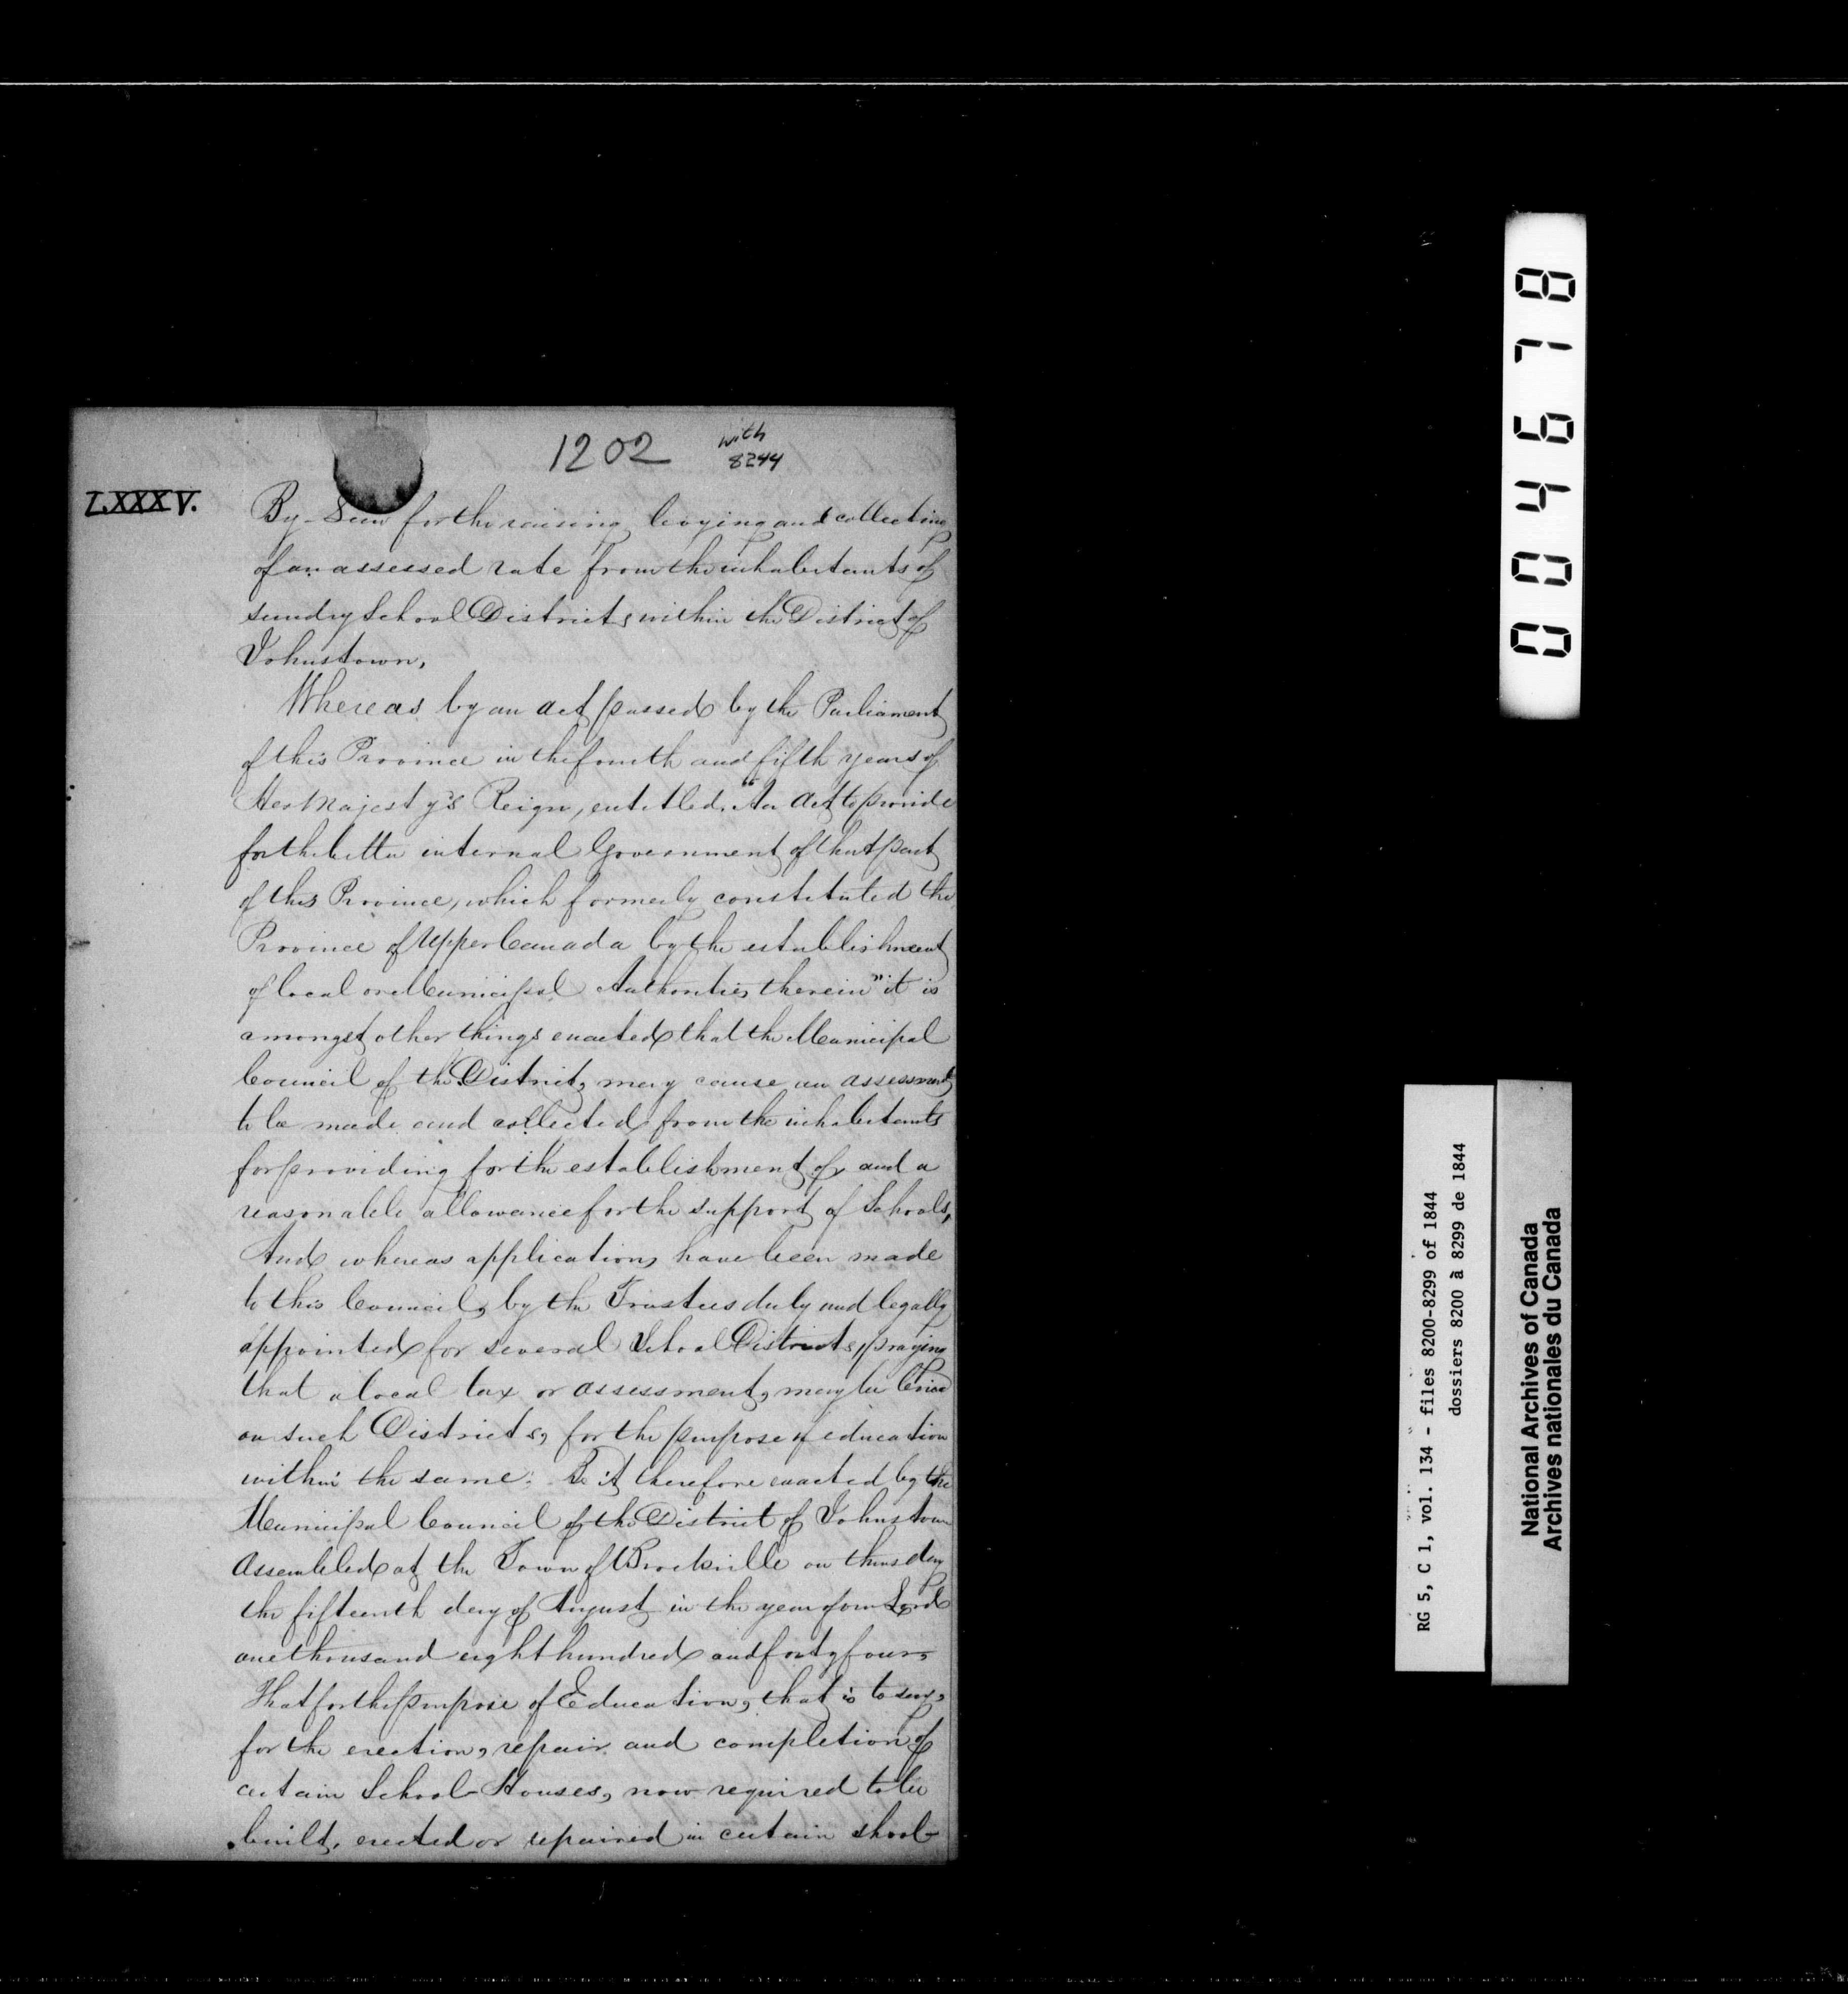 1202
with
8244
LXXXV.
By-Law for the raising levying and collecting
of an assessed rate from the inhabitants of
sundry School Districts within the District of
Johnstown,
Whereas by an act passed by the Parliament
of this Province in the fourth and fifth years of
Her Majesty's Reign, entitled, "An Act to provide
for the better internal Government of that part
of this Province, which formerly constituted the
Province of Upper Canada by the establishment
of local or Municipal Authorities therein" it is
amongst other things enacted that the Municipal
Council of the District, may cause an assessment
to be made and collected from the inhabitants
for providing for the establishment of, and a
reasonable allowance for the support of Schools,
And whereas applications have been made
to this Council, by the Trustees duly and legally
appointed for several School Districts, praying
that a local tax or assessment, may be levied
on such Districts, for the purpose of education
within the same: Be it therefore enacted by the
Municipal Council of the District of Johnstown
Assembled at the Town of Brockville on thursday
the fifteenth day of August in the year of our Lord
one thousand eight hundred and forty four,
That for the purpose of Education, that is to say,
for the erection, repair and completion of
certain School-Houses, now required to be
built, erected or repaired in certain shool-
004678
RG 5, C 1, vol. 134 - files 8200-8299 of 1844
dossiers 8200 à 8299 de 1844
National Archives of Canada
Archives nationales du Canada